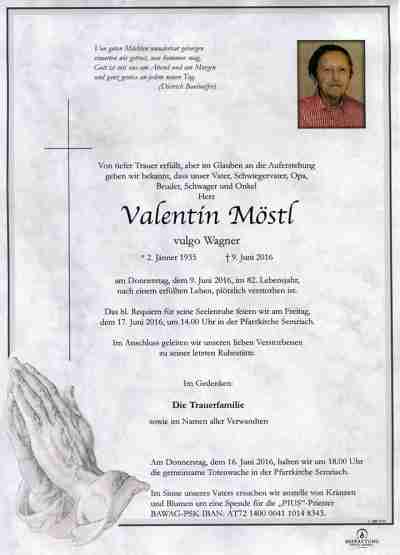 Von guten Mächten wunderbar geborgen
erwarten wir getrost, was kommen mag,
Gott ist mit uns am Abend und am Morgen
und ganz gewiss an jedem neuen Tag.
(Dietrich Bonhoeffer)
Von tiefer Trauer erfüllt, aber im Glauben an die Auferstehung
geben wir bekannt, dass unser Vater, Schwiegervater, Opa,
Bruder, Schwager und Onkel
Herr
Valentin Möstl
vulgo Wagner
* 2. Jänner 1935 † 9. Juni 2016
am Donnerstag, dem 9. Juni 2016, im 82. Lebensjahr,
nach einem erfüllten Leben, plötzlich verstorben ist.
Das hl. Requiem für seine Seelenruhe feiern wir am Freitag,
dem 17. Juni 2016, um 14.00 Uhr in der Pfarrkirche Semriach.
Im Anschluss geleiten wir unseren lieben Verstorbenen
zu seiner letzten Ruhestätte.
Im Gedenken:
Die Trauerfamilie
sowie im Namen aller Verwandten
Am Donnerstag, dem 16. Juni 2016, halten wir um 18.00 Uhr
die gemeinsame Totenwache in der Pfarrkirche Semriach.
Im Sinne unseres Vaters ersuchen wir anstelle von Kränzen
und Blumen um eine Spende für die „PIUS“-Priester
BAWAG-PSK IBAN: AT72 1400 0041 1014 8345.
BESTATTUNG